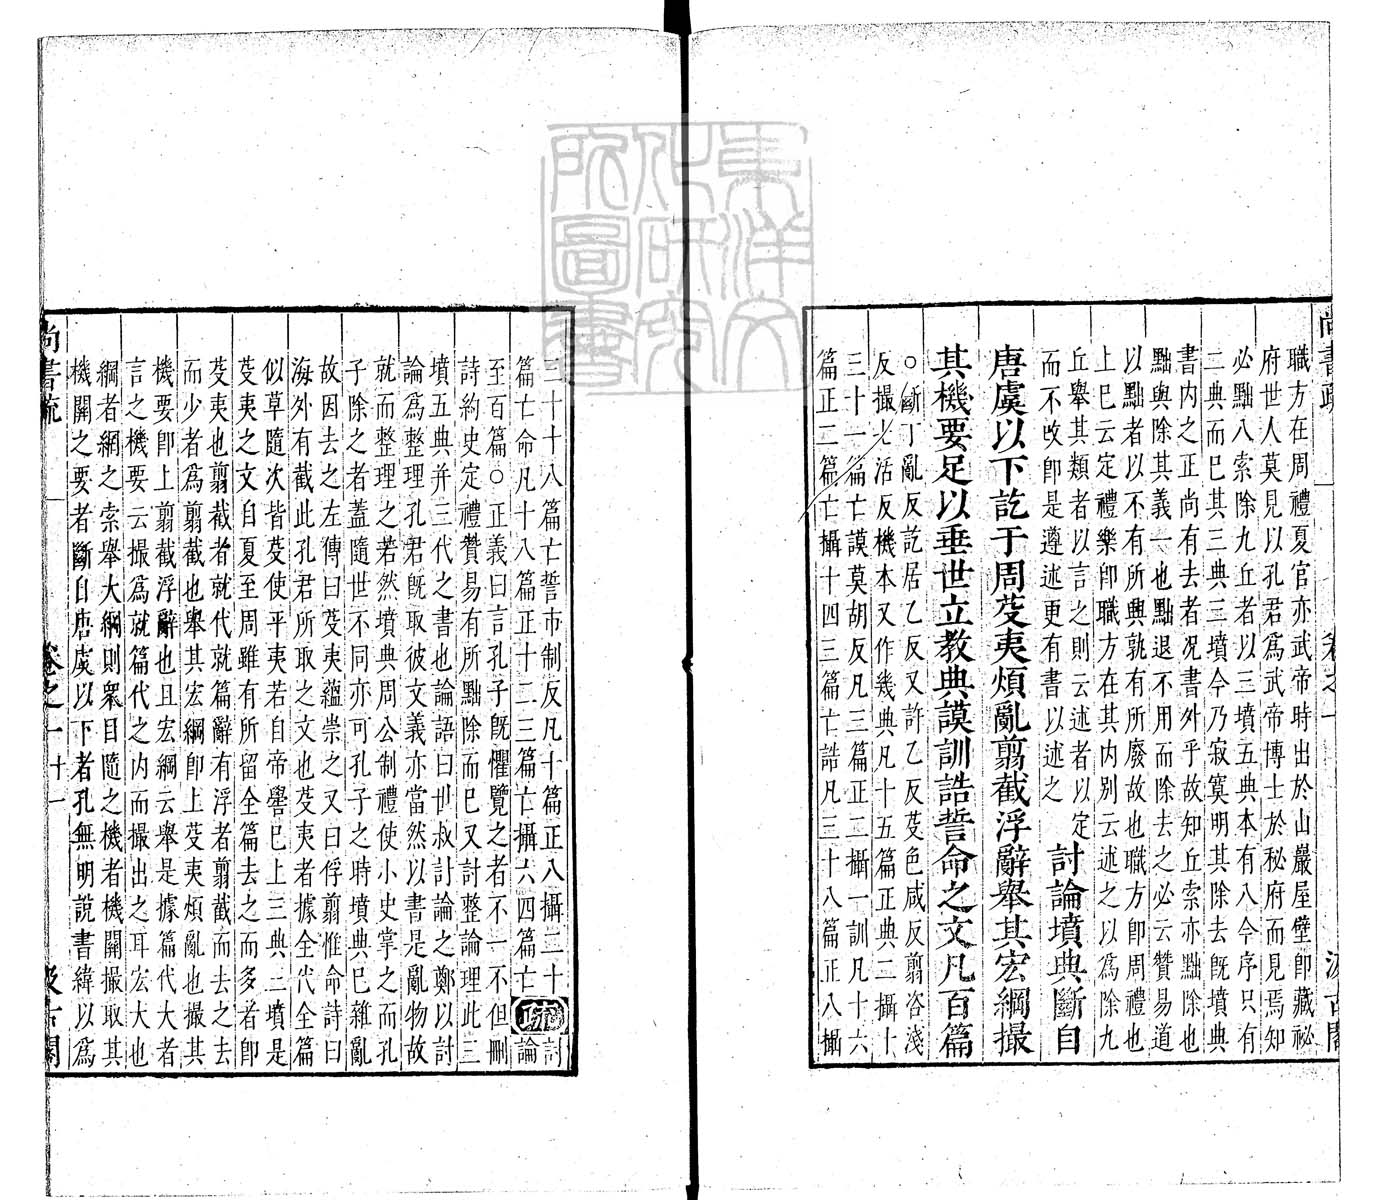 職方在周禮夏官亦武帝時出於山巖屋壁卽藏祕
府世人莫見以孔君爲武帝博士於秘府而見焉知
必黜八索除九丘者以三墳五典本有八今序只有
二典而已其三典三墳今乃寂寞明其除去旣墳典
書内之正尚有去者况書外乎故知丘索亦黜除也
黜與除其義一也黜退不用而除去之必云贊易道
以黜者以不有所興孰有所廢故也職方卽周禮也
上已云定禮樂卽職方在其内别云述之以爲除九
丘舉其類者以言之則云述者以定
而不改卽是遵述更有書以述之
討論墳典斷自
唐虞以下訖于周芟夷煩亂翦截浮辭舉其宏綱撮
其機要足以垂世立教典謨訓誥誓命之文凡百篇
○斷丁亂反訖居乙反又許乙反芟色咸反翦咨淺
反撮七活反機本又作幾典凡十五篇正典二攝十
三十一篇亡謨莫胡反凡三篇正二攝一訓凡十六
篇正二篇亡攝十四三篇亡誥凡三十八篇正八攝
三十十八篇亡誓市制反凡十篇正八攝二十
篇亡命凡十八篇正十二三篇亡攝六四篇亡
疏
討
論
至百篇○正義曰言孔子旣懼覽之者不一不但刪
詩約史定禮贊易有所黜除而已又討整論理此三
墳五典并三代之書也論語曰世叔討論之鄭以討
論爲整理孔君旣取彼文義亦當然以書是亂物故
就而整理之若然墳典周公制禮使小史掌之而孔
子除之者蓋隨世不同亦可孔子之時墳典已雜亂
故因去之左傳曰芟夷蘊崇之又曰俘翦惟命詩曰
海外有截此孔君所取之文也芟夷者據全代全篇
似草隨次皆芟使平夷若自帝嚳已上三典三墳是
芟夷之文自夏至周雖有所留全篇去之而多者卽
芟夷也翦截者就代就篇辭有浮者翦截而去之去
而少者爲翦截也舉其宏綱卽上芟夷煩亂也撮其
機要卽上翦截浮辭也且宏綱云舉是據篇代大者
言之機要云撮爲就篇代之内而撮出之耳宏大也
綱者網之索舉大綱則衆目隨之機者機關撮取其
機關之要者斷自唐虞以下者孔無明說書緯以爲
尚書疏
卷之一
十一
汲古閣